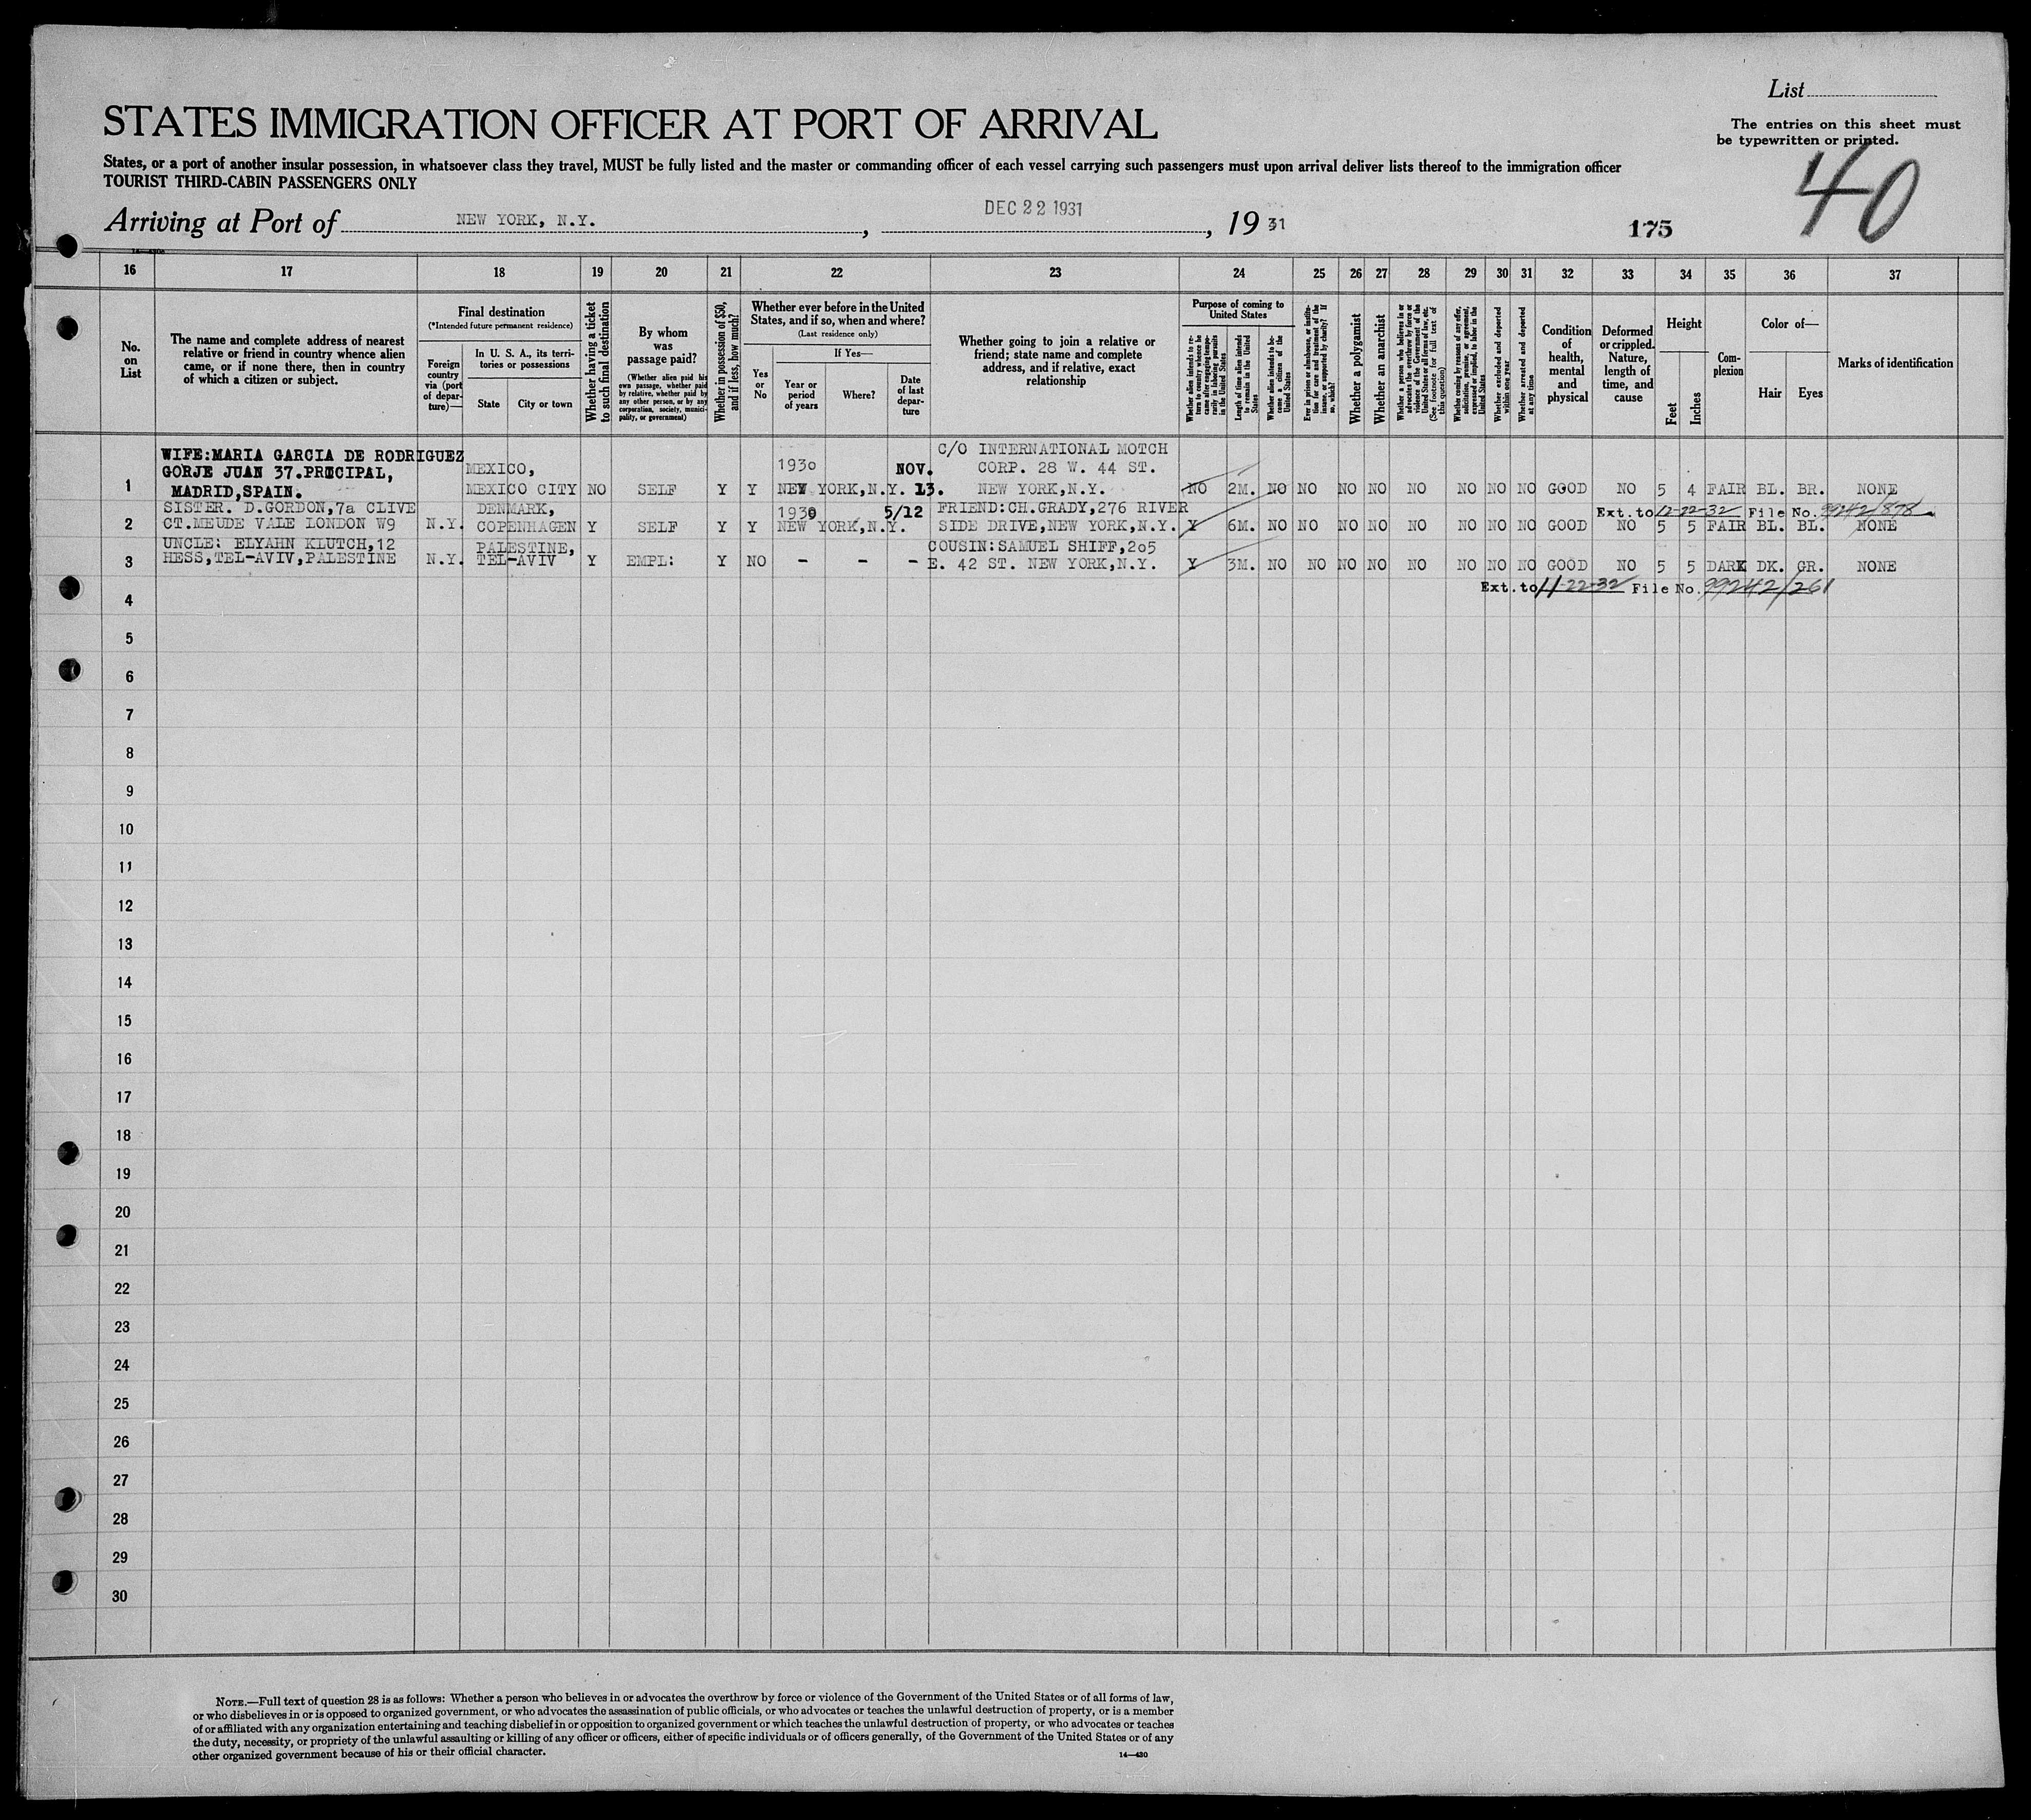 List
The entries on this sheet must
be typewritten or printed.
40
STATES IMMIGRATION OFFICER AT PORT OF ARRIVAL
States, or a port of another insular possession, in whatsoever class they travel, MUST be fully listed and the master or commanding officer of each vessel carrying such passengers must upon arrival deliver lists thereof to the immigration officer
TOURIST THIRD-CABIN PASSENGERS ONLY
Arriving at Port of NEW YORK, N.Y. , DEC 22 1931 , 19 31
175
16 17 18 19 20 21 22 23 24 25 26 27 28 29 30 31 32 33 34 35 36 37
No.
on
List
The name and complete address of nearest
relative or friend in country whence alien
came, or if none there, then in country
of which a citizen or subject.
Final destination
(*Intended future permanent residence)
Foreign
country
via (port
of depar-
ture)—
In U. S. A., its terri-
tories or possessions
State
City or town
Whether having a ticket
to such final destination
By whom
was
passage paid?
(Whether alien paid his
own passage, whether paid
by relative, whether paid by
any other person, or by any
corporation, society, munici-
pality, or government)
Whether in possession of $50,
and if less, how much?
Whether ever before in the United
States, and if so, when and where?
(Last residence only)
Yes
or
No
If Yes—
Year or
period
of years
Where?
Date
of last
depar-
ture
Whether going to join a relative or
friend; state name and complete
address, and if relative, exact
relationship
Purpose of coming to
United States
Whether alien intends to re-
turn to country whence he
came after engaging tempo-
rarily in laboring pursuits
in the United States
Length of time alien intends
to remain in the United
States
Whether alien intends to be-
come a citizen of the
United States
Ever in prison or almshouse, or institu-
tion for care and treatment of the
insane, or supported by charity? If
so, which?
Whether a polygamist
Whether an anarchist
Whether a person who believes in or
advocates the overthrow by force or
violence of the Government of the
United States or all forms of law, etc.
(See footnote for full text of
this question)
Whether coming by reasons of any offer,
solicitation, promise, or agreement,
expressed or implied, to labor in the
United States
Whether excluded and deported
within one year
Whether arrested and deported
at any time
Condition
of
health,
mental
and
physical
Deformed
or crippled.
Nature,
length of
time, and
cause
Height
Feet
Inches
Com-
plexion
Color of—
Hair
Eyes
Marks of identification
WIFE:MARIA GARCIA DE RODRIGUEZ C/O INTERNATIONAL MOTCH
GORJE JUAN 37.PRCIPAL, MEXICO, 1930 NOV. CORP. 28 W. 44 ST.
1 MADRID,SPAIN. MEXICO CITY NO SELF Y Y NEW YORK,N.Y. 13. NEW YORK,N.Y. NO 2M. NO NO NO NO NO NO NO NO GOOD NO 5 4 FAIR BL. BR. NONE
SISTER. D.GORDON,7a CLIVE DENMARK, 1930 5/12 FRIEND:CH.GRADY,276 RIVER Ext.to 12-22-32 File No. 99242/878
2 CT.MEUDE VALE LONDON W9 N.Y. COPENHAGEN Y SELF Y Y NEW YORK,N.Y. SIDE DRIVE,NEW YORK,N.Y. Y 6M. NO NO NO NO NO NO NO NO GOOD NO 5 5 FAIR BL. BL. NONE
UNCLE: ELYAHN KLUTCH,12 PALESTINE, COUSIN:SAMUEL SHIFF,205
3 HESS,TEL-AVIV,PALESTINE N.Y. TEL-AVIV Y EMPL: Y NO - - - E. 42 ST. NEW YORK,N.Y. Y 3M. NO NO NO NO NO NO NO NO GOOD NO 5 5 DARK DK. GR. NONE
4 Ext.to 11-22-32 File No. 99242/261
5
6
7
8
9
10
11
12
13
14
15
16
17
18
19
20
21
22
23
24
25
26
27
28
29
30
NOTE.—Full text of question 28 is as follows: Whether a person who believes in or advocates the overthrow by force or violence of the Government of the United States or of all forms of law,
or who disbelieves in or is opposed to organized government, or who advocates the assassination of public officials, or who advocates or teaches the unlawful destruction of property, or is a member
of or affiliated with any organization entertaining and teaching disbelief in or opposition to organized government or which teaches the unlawful destruction of property, or who advocates or teaches
the duty, necessity, or propriety of the unlawful assaulting or killing of any officer or officers, either of specific individuals or of officers generally, of the Government of the United States or of any
other organized government because of his or their official character.
14—430